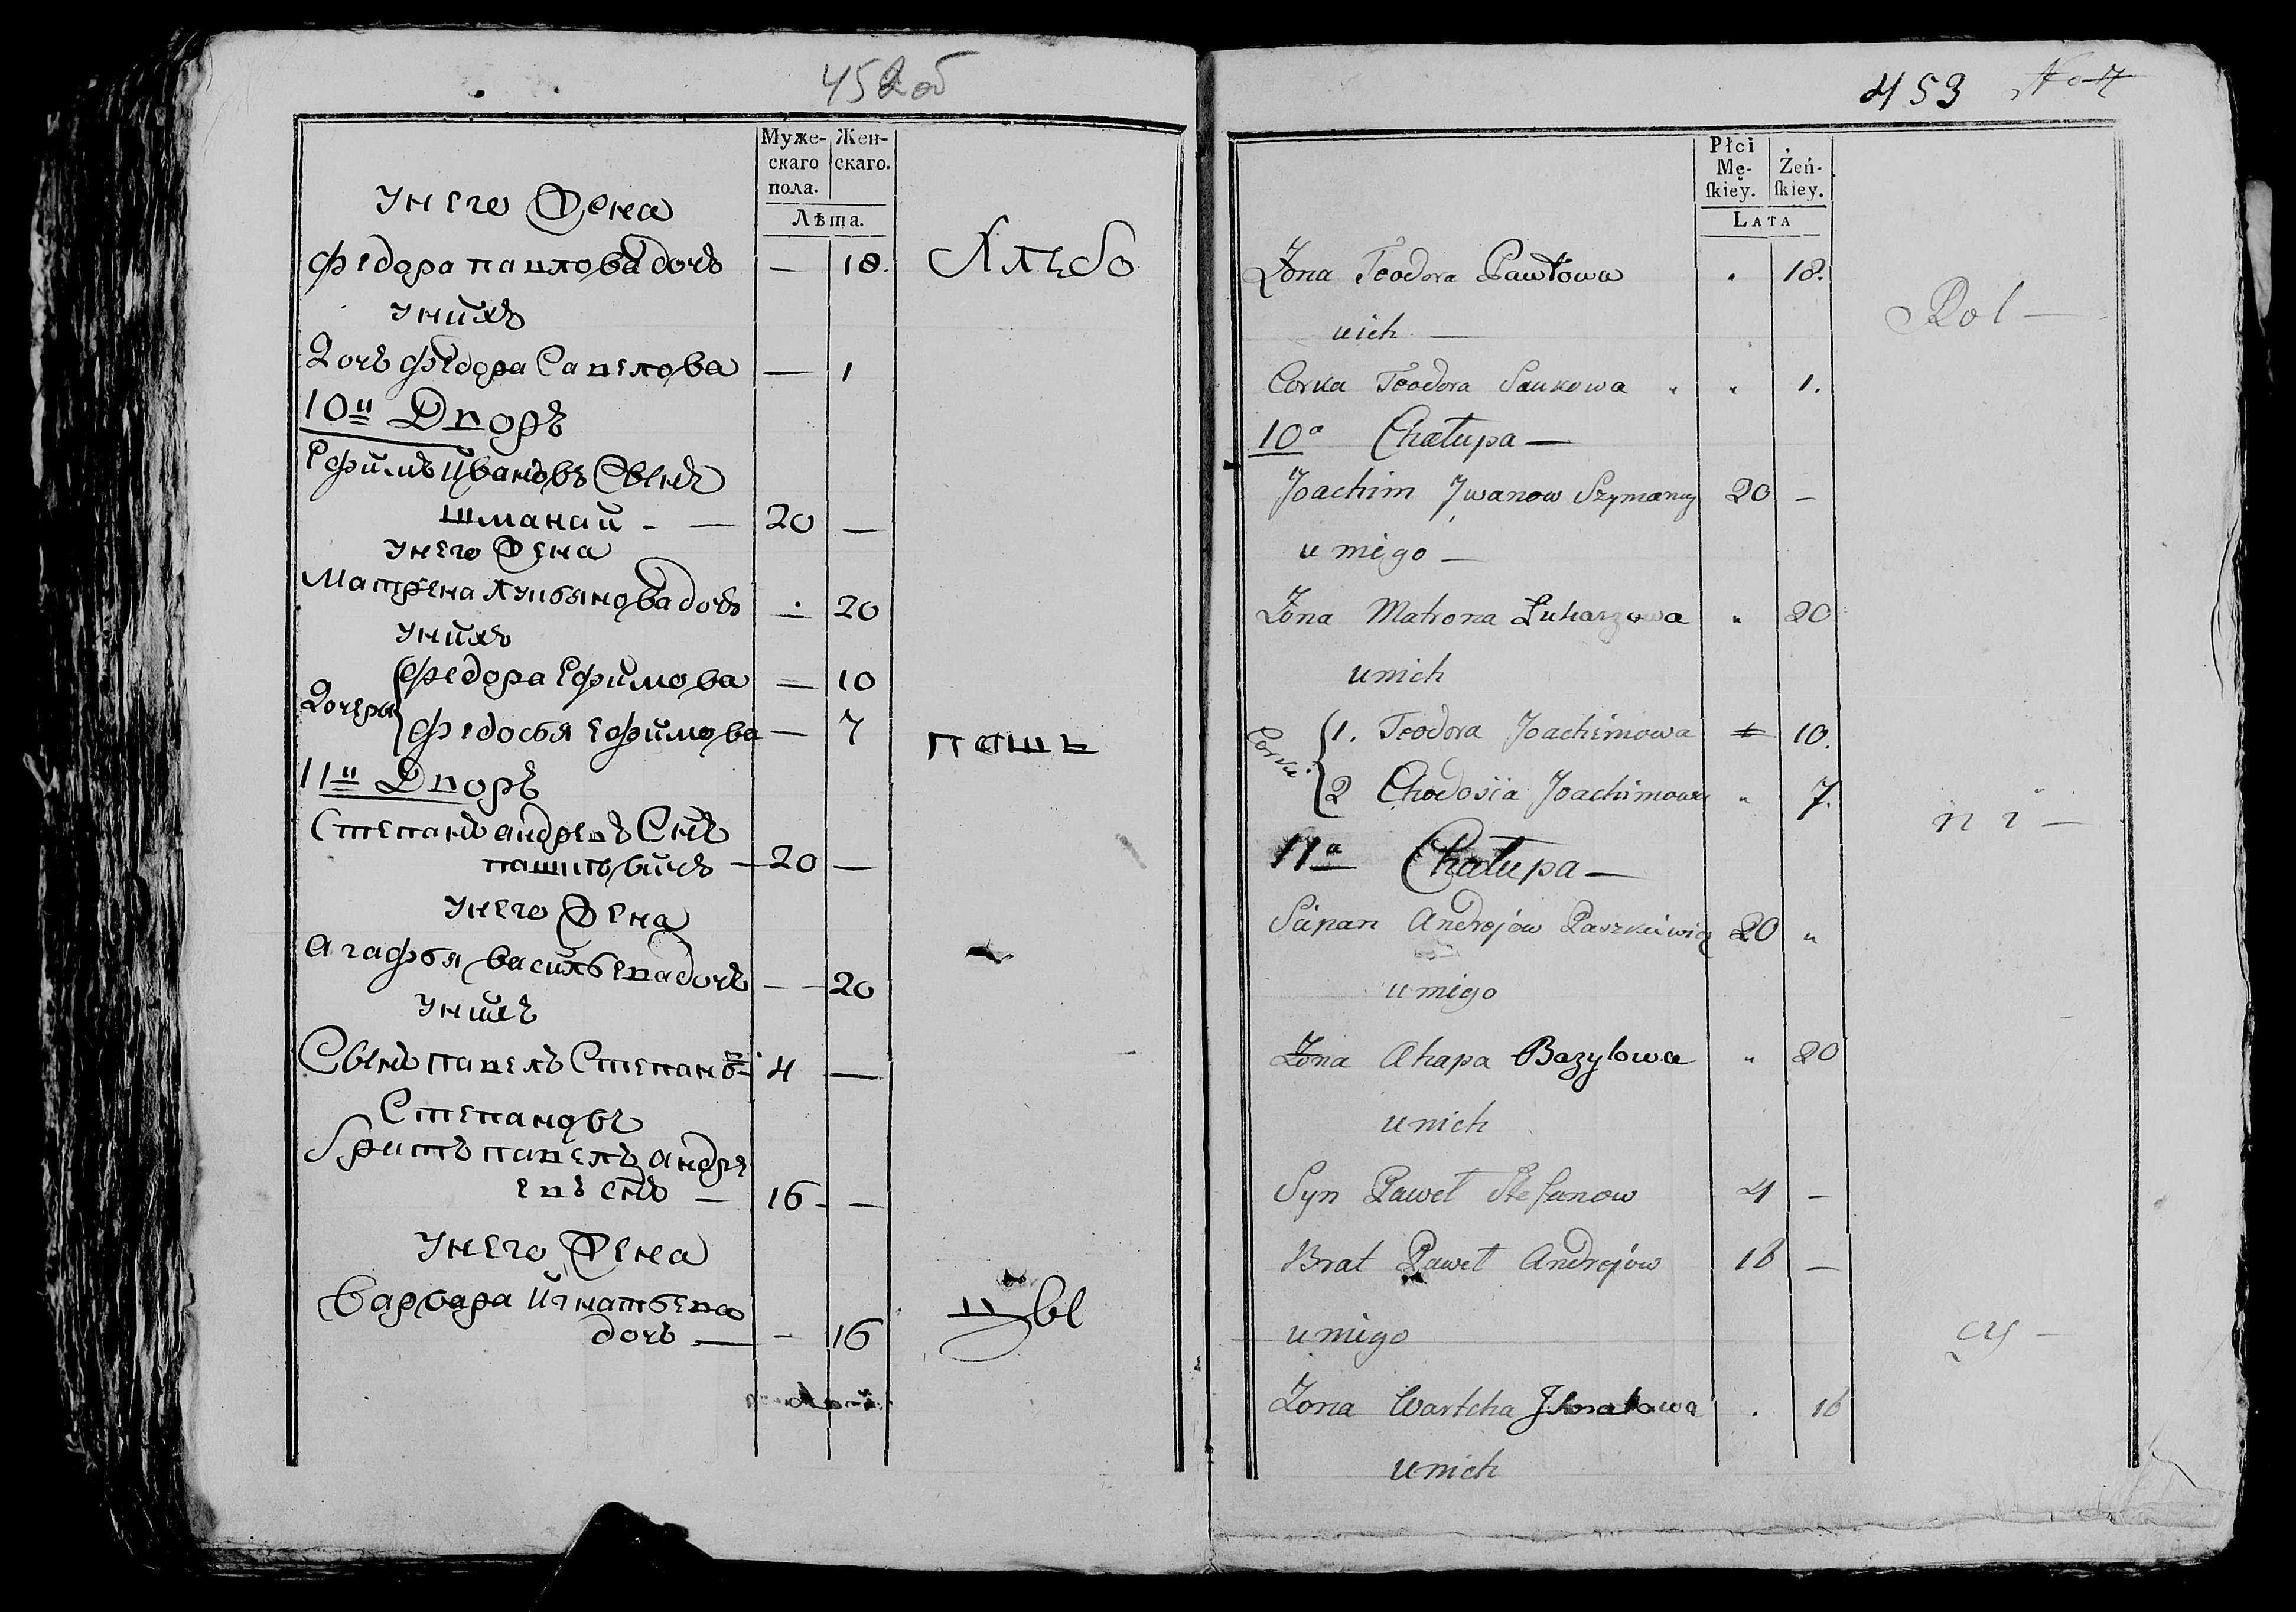 452 об
Муже-
скаго
пола.
Жен-
скаго.
Лѣта.
у него Жена
Федора павлова дочь — 18.
Хлѣбо
у нихъ
Дочь Федора Савелова — 1
10й Дворъ
Ефимъ Ивановъ Сынъ
шманай - — 20 —
у него Жена
Матрена лукьянова дочь — 20
у нихъ
Дочери
Федора Ефимова — 10
Федосья Ефимова — 7
паше
11й Дворъ
Степанъ андреевъ Снъ
пашкевичъ — 20 —
у него Жена
агафья васильева дочь — 20
у нихъ
Сынъ павелъ Степановъ 4 —
Степановъ
братъ павелъ андре
евъ снъ — 16 —
у него Жена
варвара Игнатьева
дочь — - 16
цы
453
Płci
Mę-
ſkiey.
Żeń-
ſkiey.
LATA
Żona Teodora Pawłowa 18.
Rol —
unich —
Corka Teodora Saukowa " " 1.
10a Chałupa —
Joachim Jwanow Szymanay 20 —
u niego —
Żona Matrona Łukaszowa " 20
unich
Corki
1. Teodora Joachimowa 10.
2 Chodosia Joachimowa " 7.
ni —
11a Chałupa —
Scipan Andrejów Paszkiewicz 20 "
u niego
Żona Ahapa Bazylowa " 20
unich
Syn Paweł Stefanow 4 —
Brat Paweł Andrejów 16 —
u niego
cy —
Żona Warka Jhnatowa . 16
unich